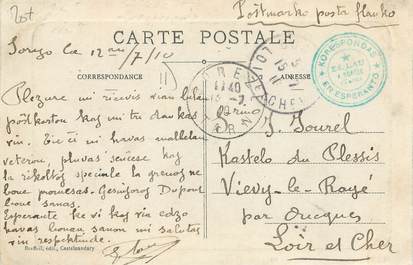 Poŝtmarko posta flanko
Sorèze la 12an/7/10
CARTE POSTALE
CORRESPONDANCE
ADRESSE
KORESPONDAS
EN ESPERANTO
Plezure mi ricevis vian belan
poŝtkarton kaj mi tre dankas
vin. Tie ĉi ni havas malbelan
veteron, pluvas senĉese kaj
la rikoltoj speciale la grenoj ne
bone promesas. Gesinjoroj Dupont
bone sanas.
Esperante ke vi kaj via edzo
havas bonan sanon mi salutas
vin respektinde.
J. Gourel
Kastelo du Plessis
Vievy-le-Rayé
par Oucques
Loir et Cher
édit., Castelnaudary